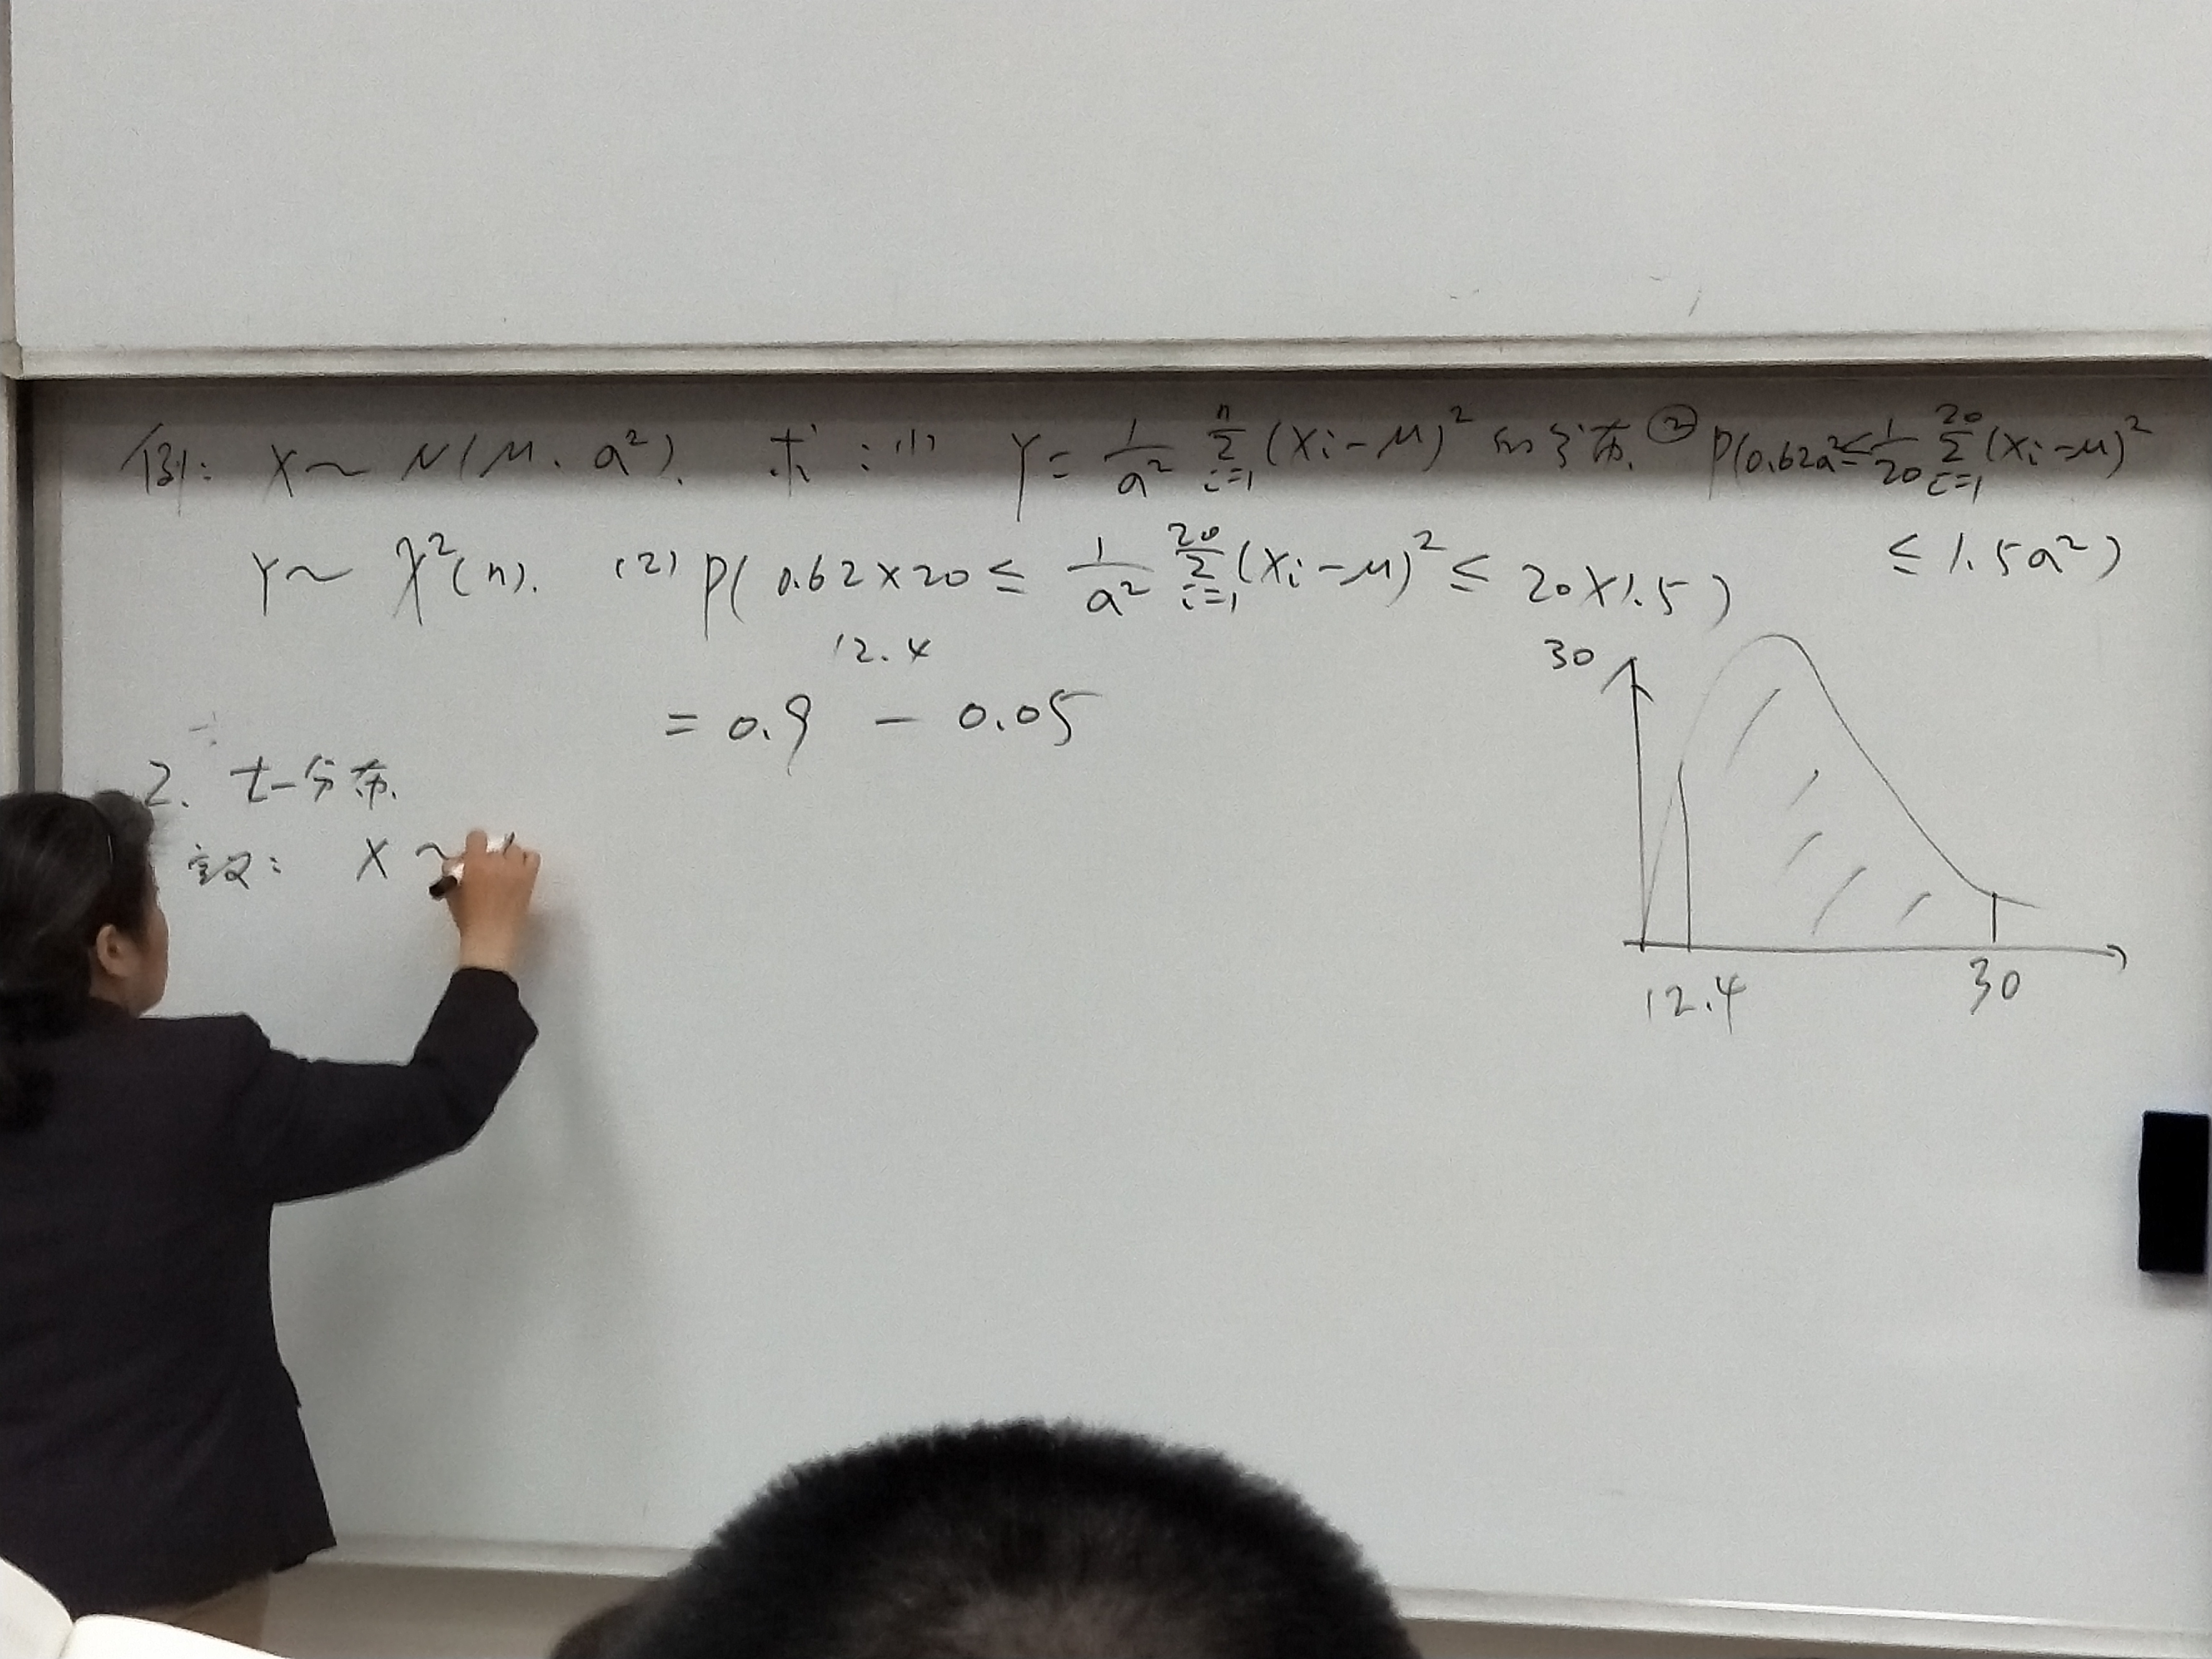 例: X ~ N(μ, a²). 求:(1) Y = 1/a² Σ_{i=1}^{n} (Xi-μ)² 的分布. ② P(0.62a² ≤ 1/20 Σ_{i=1}^{20} (Xi-μ)²
≤ 1.5a²)
Y ~ χ²(n). (2) P( 0.62×20 ≤ 1/a² Σ_{i=1}^{20} (Xi-μ)² ≤ 20×1.5)
12.4 30
= 0.9 - 0.05
2. t-分布.
定义: X ~
12.4 30